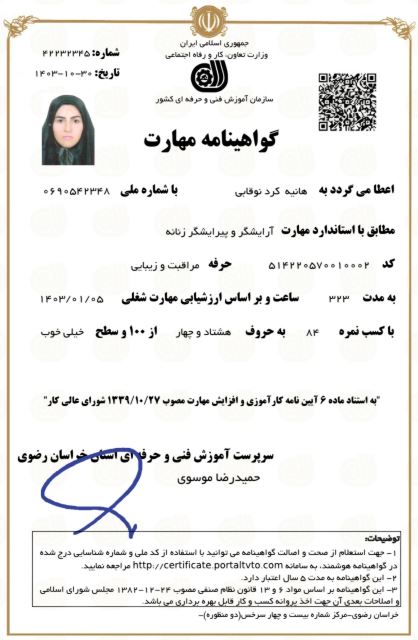 جمهوری اسلامی ایران
وزارت تعاون، کار و رفاه اجتماعی
سازمان آموزش فنی و حرفه ای کشور
شماره: ۴۲۲۳۲۳۴۵
تاریخ: ۱۴۰۳-۱۰-۳۰
گواهینامه مهارت
اعطا می گردد به هانیه کرد نوقابی با شماره ملی ۰۶۹۰۵۴۲۳۴۸
مطابق با استاندارد مهارت آرایشگر و پیرایشگر زنانه
کد ۵۱۴۲۲۰۵۷۰۰۱۰۰۰۲ حرفه مراقبت و زیبایی
به مدت ۳۲۳ ساعت و بر اساس ارزشیابی مهارت شغلی ۱۴۰۳/۰۱/۰۵
با کسب نمره ۸۴ به حروف هشتاد و چهار از ۱۰۰ و سطح خیلی خوب
"به استناد ماده ۶ آیین نامه کارآموزی و افزایش مهارت مصوب ۱۳۳۹/۱۰/۲۷ شورای عالی کار"
سرپرست آموزش فنی و حرفه ای استان خراسان رضوی
حمیدرضا موسوی
توضیحات:
۱- جهت استعلام از صحت و اصالت گواهینامه می توانید با استفاده از کد ملی و شماره شناسایی درج شده
در گواهینامه هوشمند، به سامانه http://certificate.portaltvto.com مراجعه نمایید.
۲- این گواهینامه به مدت ۵ سال اعتبار دارد.
۳- این گواهینامه بر اساس مواد ۶ و ۱۳ قانون نظام صنفی مصوب ۲۴-۱۲-۱۳۸۲ مجلس شورای اسلامی
و اصلاحات بعدی آن جهت اخذ پروانه کسب و کار قابل بهره برداری می باشد.
خراسان رضوی-مرکز شماره بیست و چهار سرخس(دو منظوره)-